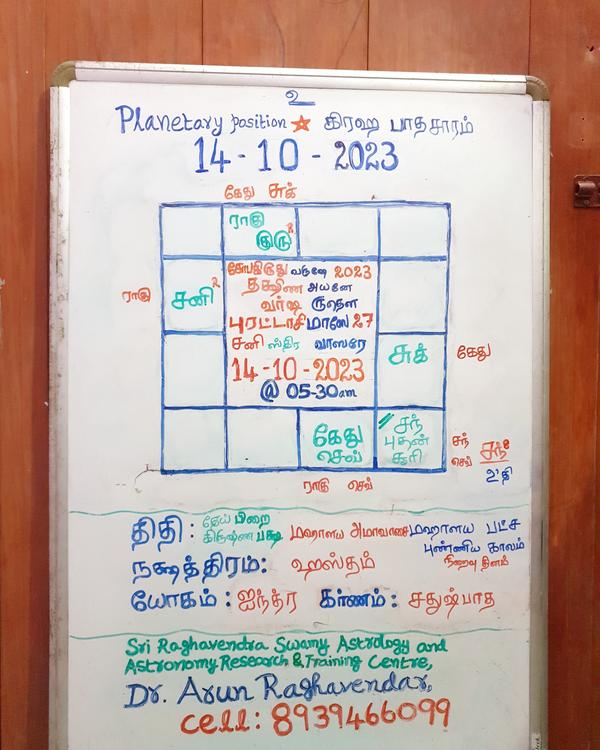 உ
Planetary position கிரஹ பாதசாரம்
14-10-2023
கேது சுக்
ராகு
குரு
ராகு சனி
சுக் கேது
கேது
செவ்
சந்
புதன்
சூரி
ராகு செவ்
சந்
செவ்
சந்
உ'தி
வருஷே 2023
தக்ஷிண அயனே
வர்ஷ ருதௌ
புரட்டாசி மாஸே 27
சனி ஸ்திர வாஸரே
14-10-2023
@ 05-30am
திதி: தேய் பிறை கிருஷ்ண பக்ஷ மஹாளய அமாவாசை மஹாளய பட்ச
புண்ணிய காலம்
நிறைவு தினம்
நக்ஷத்திரம்: ஹஸ்தம்
யோகம்: ஐந்த்ர கர்ணம்: சதுஷ்பாத
Sri Raghavendra Swamy Astrology and
Astronomy Research & Training Centre,
Dr. Arun Raghavendar,
cell: 8939466099